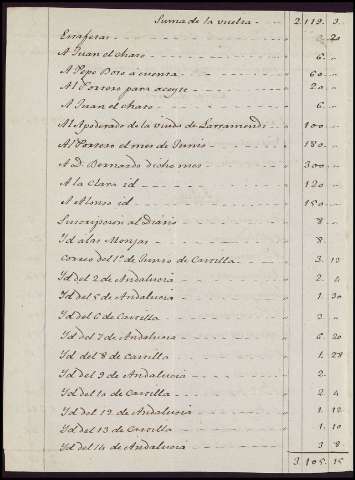 Suma de la vuelta - - - 2.119. 3.
Estafetas - - - 3. 20
A Juan el charo - - - 6. -
A Pepe Boro a cuenta - - - 60. -
Al Portero para aceyte - - - 20. -
A Juan el charo - - - 6. -
Al Apoderado de la viuda de Larramendi - - - 100. -
Al Portero el mes de Junio - - - 180. -
A D. Bernardo dicho mes - - - 300. -
A la Clara id - - - 120. -
A Alonso id - - - 150. -
Suscripcion al Diario - - - 8. -
Id a las Monjas - - - 8. -
Correo del 1º de Junio de Castilla - - - 3. 13
Id del 2 de Andalucia - - - 2. 4
Id del 5 de Andalucia - - - 1. 30
Id del 6 de Castilla - - - 3 -
Id del 7 de Andalucia - - - 6. 20
Id del 8 de Castilla - - - 1. 28
Id del 9 de Andalucia - - - 2.
Id del 10 de Castilla - - - 2. 4
Id del 12 de Andalucia - - - 1. 12
Id del 13 de Castilla - - - 1. 10
Id del 14 de Andalucia - - - 3 8
3.105. 15